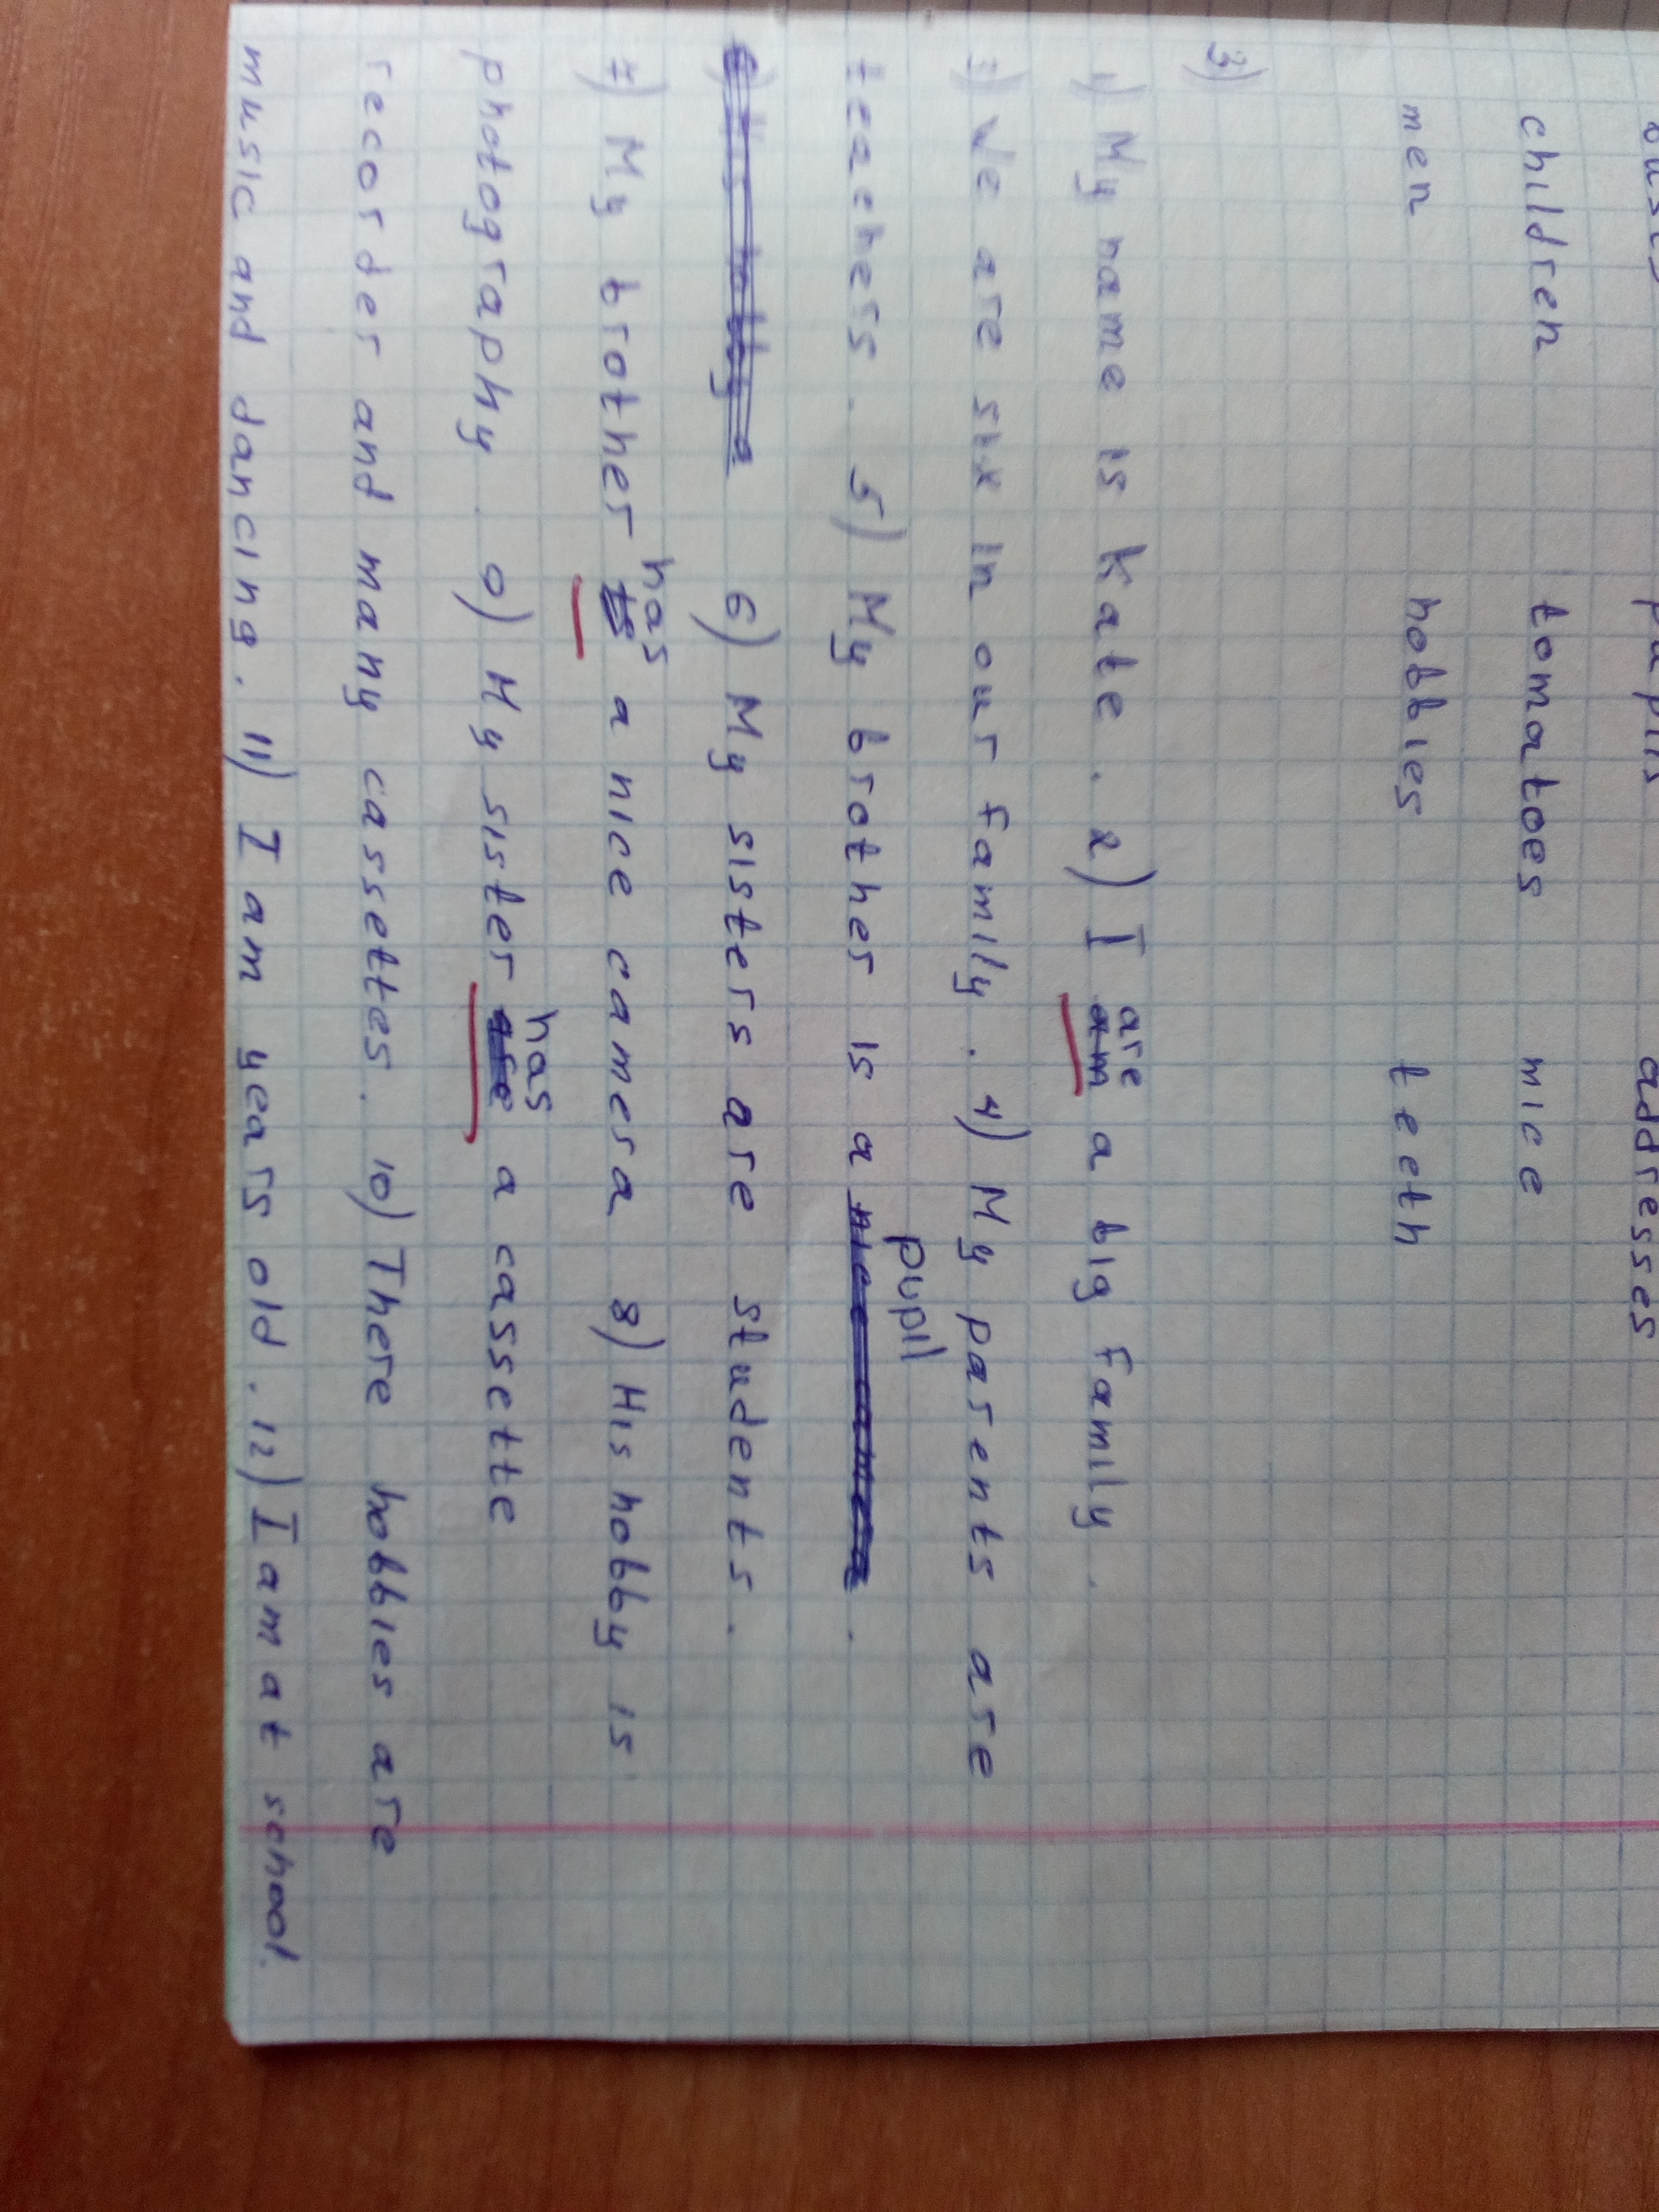 pupils addresses
children tomatoes mice
men hobbies teeth
3)
1) My name is Kate. 2) I are a big family.
3) We are six in our family. 4) My parents are
pupil
teachers. 5) My brother is a nice camera.
6) My sisters are students.
has
7) My brother is a nice camera 8) His hobby is
photography. 9) My sister has a cassette
recorder and many cassettes. 10) There hobbies are
music and dancing. 11) I am years old. 12) I am at school.